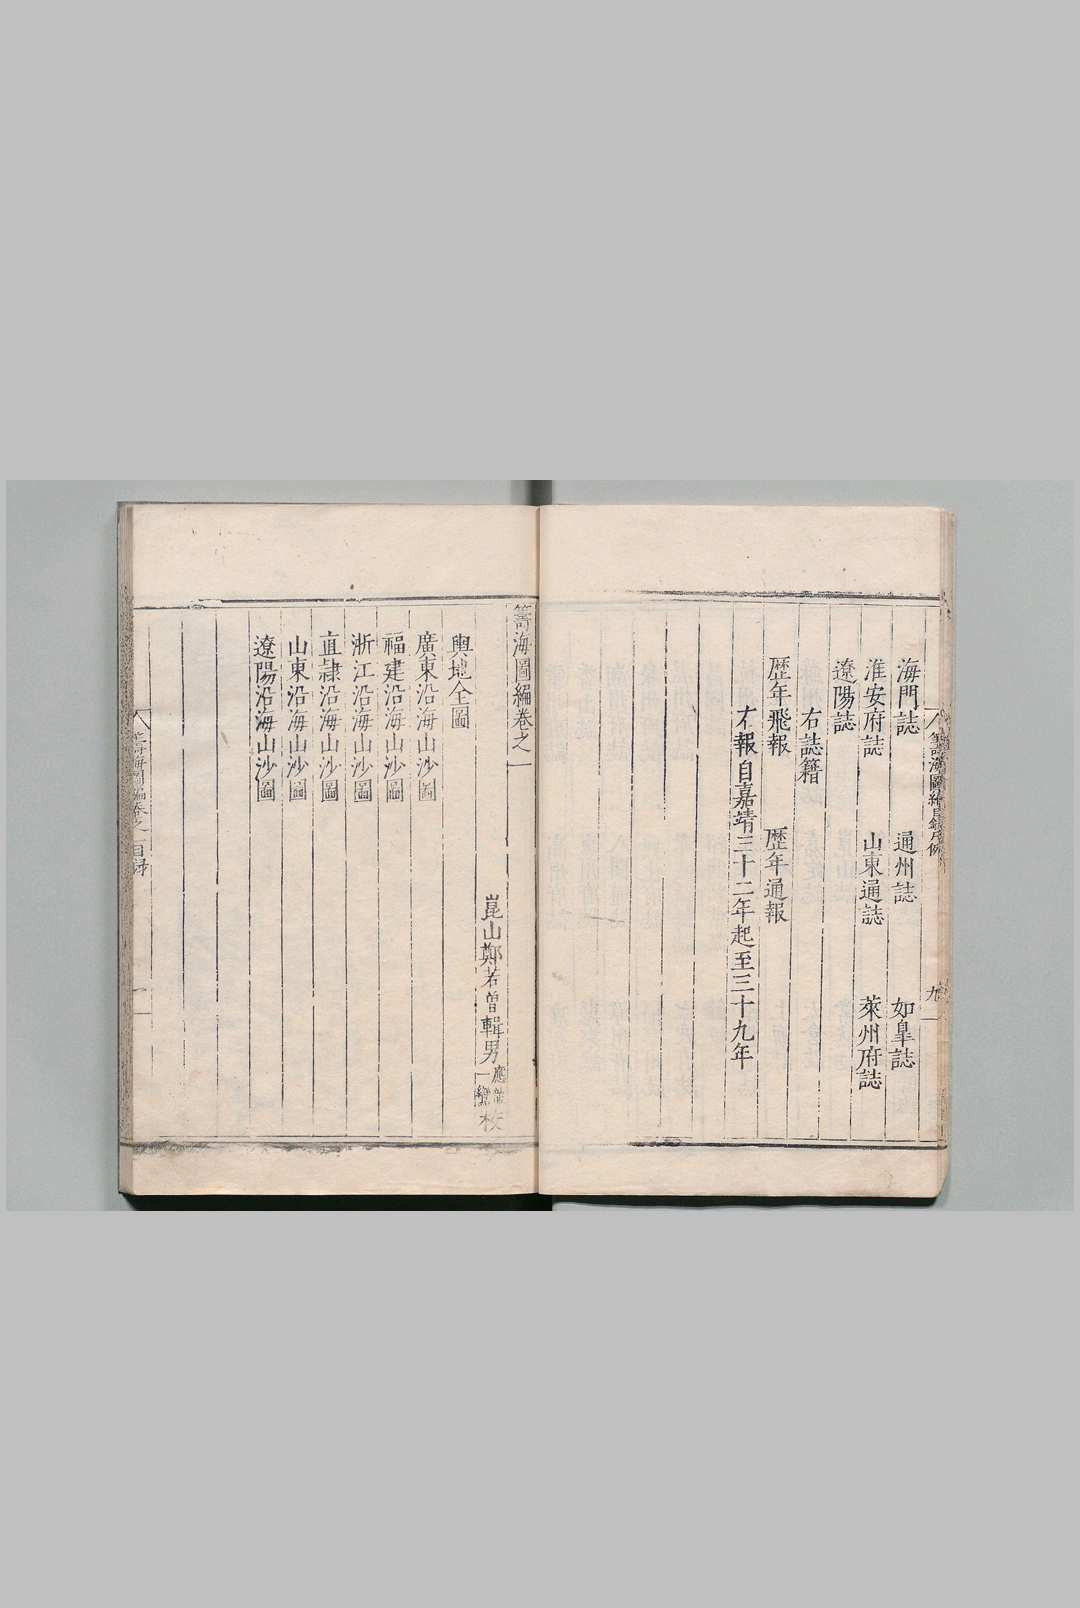 海門誌 通州誌 如皐誌
淮安府誌 山東通誌 萊州府誌
遼陽誌
右誌籍
歷年飛報 歷年通報
右報自嘉靖三十二年起至三十九年
九
籌海圖編卷之一
崑山鄭若曾輯男應龍一鸞校
輿地全圖
廣東沿海山沙圖
福建沿海山沙圖
浙江沿海山沙圖
直隷沿海山沙圖
山東沿海山沙圖
遼陽沿海山沙圖
籌海圖編卷之一目録
一